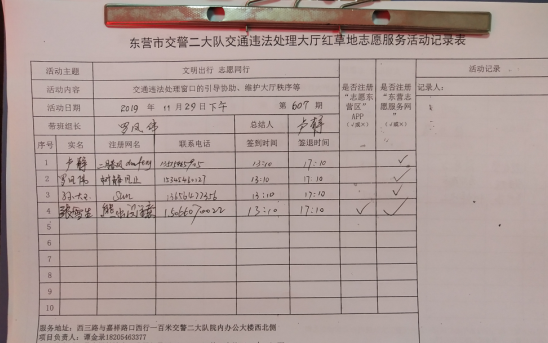 东营市交警二大队交通违法处理大厅红草地志愿服务活动记录表
活动主题 文明出行 志愿同行 活动记录
活动内容 交通违法处理窗口的引导协助、维护大厅秩序等 是否注册“志愿东营区”APP（√或×） 是否注册“东营志愿服务网”（√或×） 记录人：
活动日期 2019 年 11 月 29日下午 第 607 期
带班组长 罗凤伟 总结人 卢静
序号 实名 注册网名 联系电话 签到时间 签退时间
1 卢静 13:10 17:10 √
2 罗凤伟 树静风止 15345460127 13:10 17:10 √
3 Sun 13656477356 13:10 17:10 √
4 15066070022 13:10 17:10 √ √
5
6
7
8
9
10
服务地址：西三路与嘉祥路口西行一百米交警二大队院内办公大楼西北侧
项目负责人：谭金录18205463377